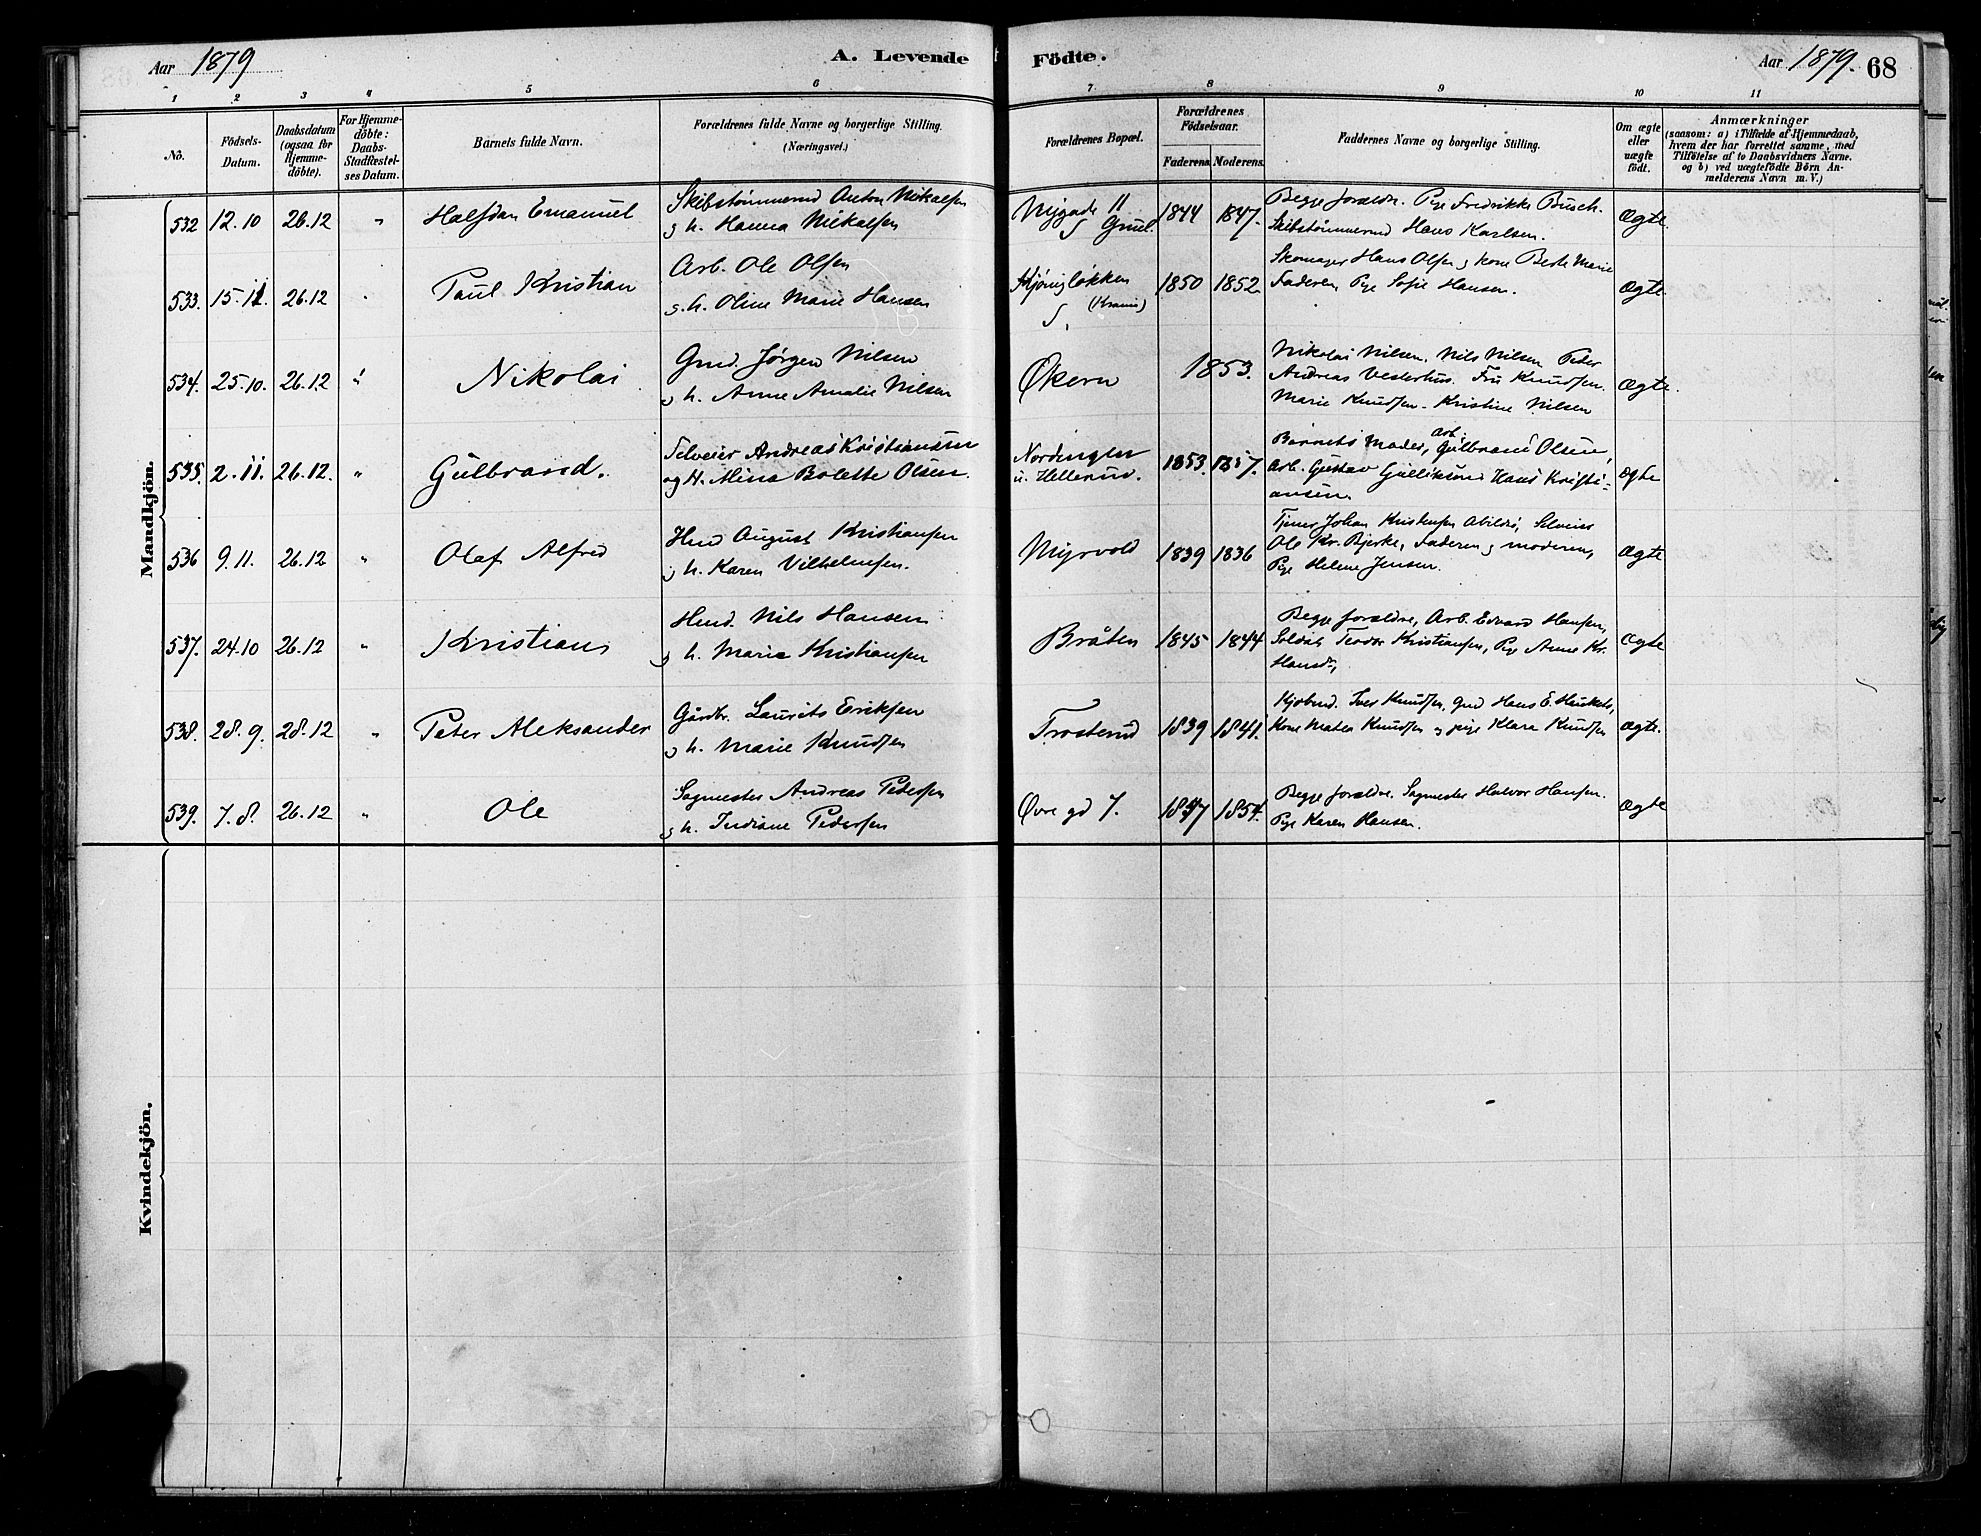 Aar 1879
A. Levende Födte.
Aar 1879. 68
1 2 3 4 5 6 7 8 9 10 11
No.
Födsels-Datum.
Daabsdatum (ogsaa for Hjemme-döbte).
For Hjemme-döbte: Daabs-Stadfæstel-ses Datum.
Barnets fulde Navn.
Forældrenes fulde Navne og borgerlige Stilling.
(Næringsvei.)
Forældrenes Bopæl.
Forældrenes Födselsaar.
Faderens. Moderens.
Faddernes Navne og borgerlige Stilling.
Om ægte eller uægte födt.
Anmærkninger
(saasom: a) i Tilfælde af Hjemmedaab,
hvem der har forrettet samme, med
Tilföielse af to Daabsvidners Navne.
og b) ved uægtefödte Börn An-
melderens Navn m. V.)
Mandkjön.
532 12.10 26.12 " Halfdan Emanuel
Skibstømmermd Anton Mikalsen
g h. Hanna Mikalsen
Nygade 11
1844 1847.
Begge forældre. Pige Fredrikke Busch.
Skibstømmermd Hans Karlsen.
Ægte.
533. 15.11. 26.12 " Paul Kristian
Arb. Ole Olsen
g. h. Oline Marie Hansen
1850 1852
Skomager Hans Olsen g kone Berte Marie
Faderen Pige Sofie Hansen.
Ægte.
534. 25.10. 26.12 " Nikolai
Gmd. Jørgen Nilsen
g h. Anne Amalie Nilsen
Økern
1853.
Nikolai Nilsen, Nils Nilsen Peder
Andreas Vesterhus. Fru Knudsen.
Marie Knudsen. Kristine Nilsen
Ægte.
535. 2.11. 26.12. " Gulbrand.
Selveier Andreas Kristiansen
og H. Mina Bolette Olsen.
Nordingen
u. Hellerud.
1853. 1857.
Barnets Moder, Arb. Gulbrand Olsen,
Arb. Gustav Gulliksen Hans Kristi-
ansen.
Ægte
536 9.11. 26.12 " Olaf Alfred
Hmd August Kristiansen
g h. Karen Vilhelmsen.
Myrvold
1839 1836
Tjener Johan Kristensen Abildsø, Selveier
Ole Kr. Bjerke, Faderen g moderen,
Pige Helene Jensen.
Ægte
537. 24.10 26.12 " Kristian
Hmd. Nils Hansen
g h. Marie Kristiansen
Bråten
1845 1844
Begge forældre, Arb. Edvard Hansen,
Soldat Teodor Kristiansen, Pige Anne Kr.
Hansd.
Ægte
538. 28.9. 28.12 " Peter Aleksander
Gårdbr. Laurits Eriksen
g h. Marie Knudsen
Trosterud
1839 1841.
Kjøbmd. Iver Knudsen, Gmd Hans E.
Kone Mathea Knudsen g pige Klara Knudsen
Ægte.
539. 7.8. 26.12 " Ole
Sagmester Andreas Pedersen
g h. Indiane Pedersen
Øvre gd 7.
1847 1854.
Begge forældre. Sagmester Halvor Hansen.
Pige Karen Hansen.
Ægte
Kvindekjön.